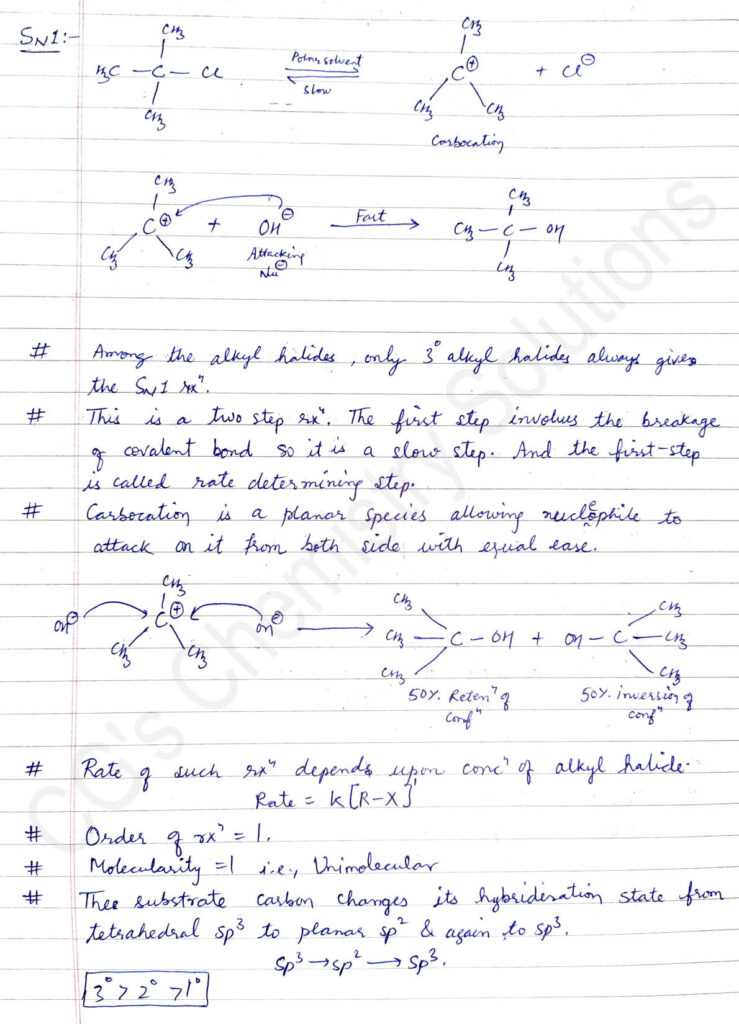 SN1:-
CH3
H3C — C — Cl
CH3
Polar solvent
Slow
CH3
C⊕
CH3 CH3
Carbocation
+ Cl⊖
CH3
C⊕
CH3 CH3
+ OH⊖
Attacking
Nu⊖
Fast
CH3
CH3 — C — OH
CH3
# Among the alkyl halides, only 3° alkyl halides always gives
the SN1 rxⁿ.
# This is a two step rxⁿ. The first step involves the breakage
of covalent bond so it is a slow step. And the first-step
is called rate determining step.
# Carbocation is a planar species allowing nucleophile to
attack on it from both side with equal ease.
CH3
OH⊖ C⊕ OH⊖
CH3 CH3
CH3
CH3 — C — OH
CH3
+
CH3
OH — C — CH3
CH3
50%. Retenⁿ of
confⁿ
50%. inversion of
confⁿ
# Rate of such rxⁿ depends upon concⁿ of alkyl halide.
Rate = K[R-X]¹
# Order of rxⁿ = 1.
# Molecularity = 1 i.e., Unimolecular
# The substrate carbon changes its hybridisation state from
tetrahedral sp³ to planar sp² & again to sp³.
Sp³ → sp² → Sp³.
3° > 2° > 1°
CG's Chemistry Solutions